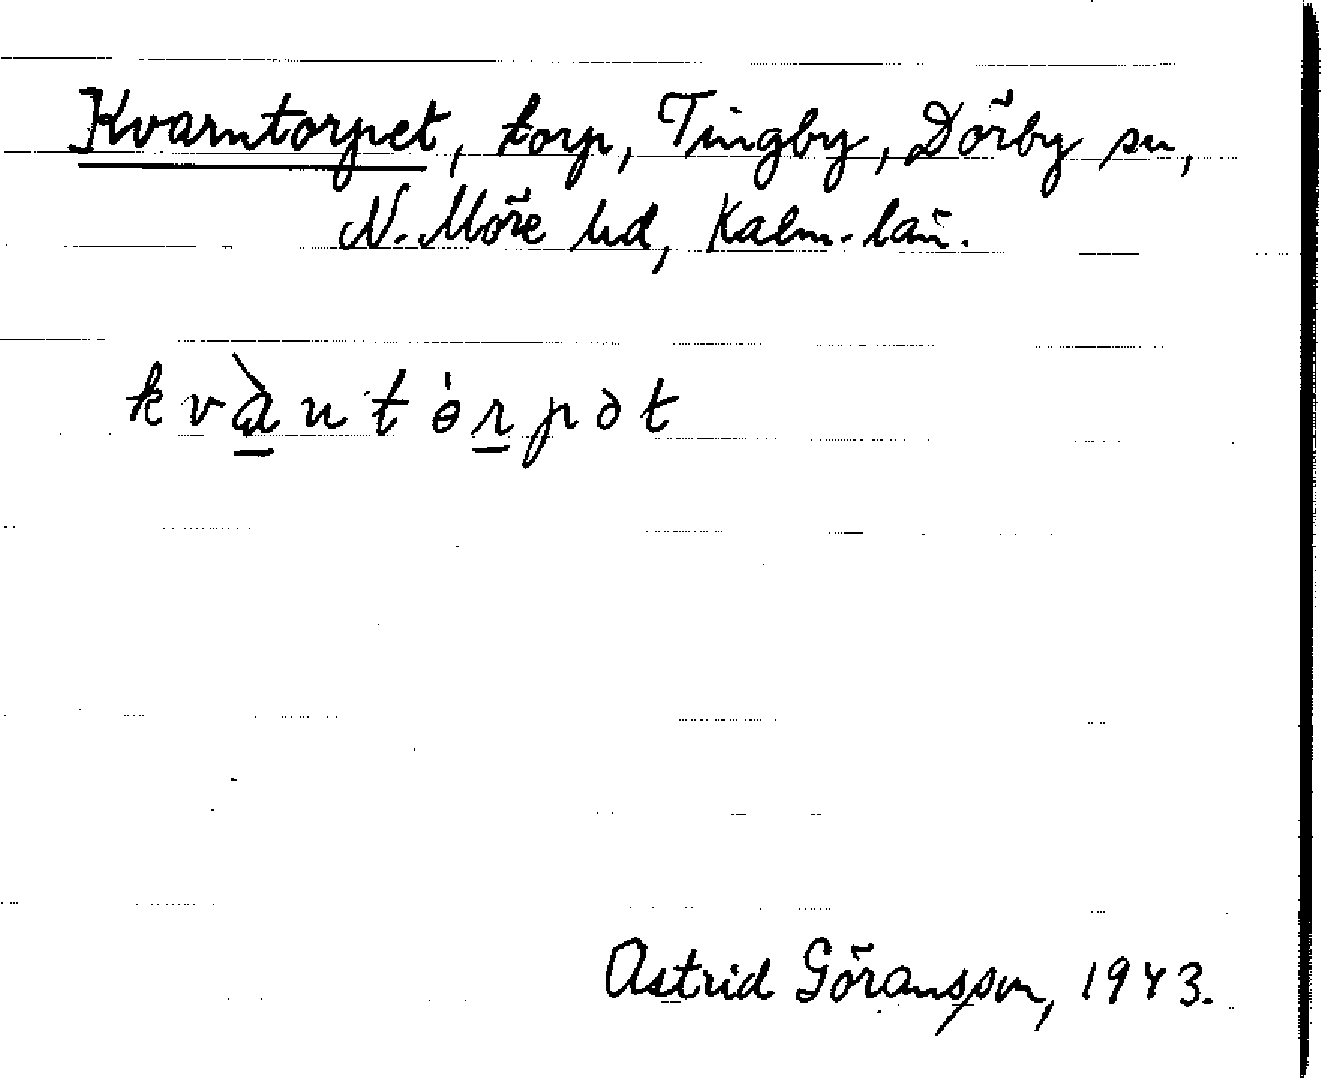 Kvarntorpet, torp, Tingby, Dörby sn,
N. Möre hd, Kalm. län.
kvàntɵ́rpət
Astrid Göransson, 1943.